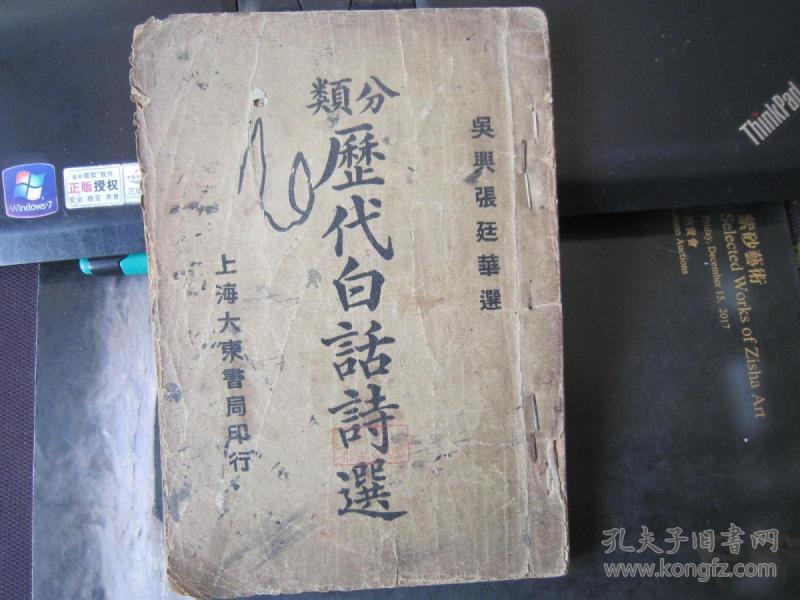 吳興張廷華選
分類
歷代白話詩選
上海大東書局印行
ThinkPad
Windows 7
正版授权
安全 稳定 声誉
紫砂藝術
Selected Works of Zisha Art
Friday, December 15, 2017
孔夫子旧书网
www.kongfz.com